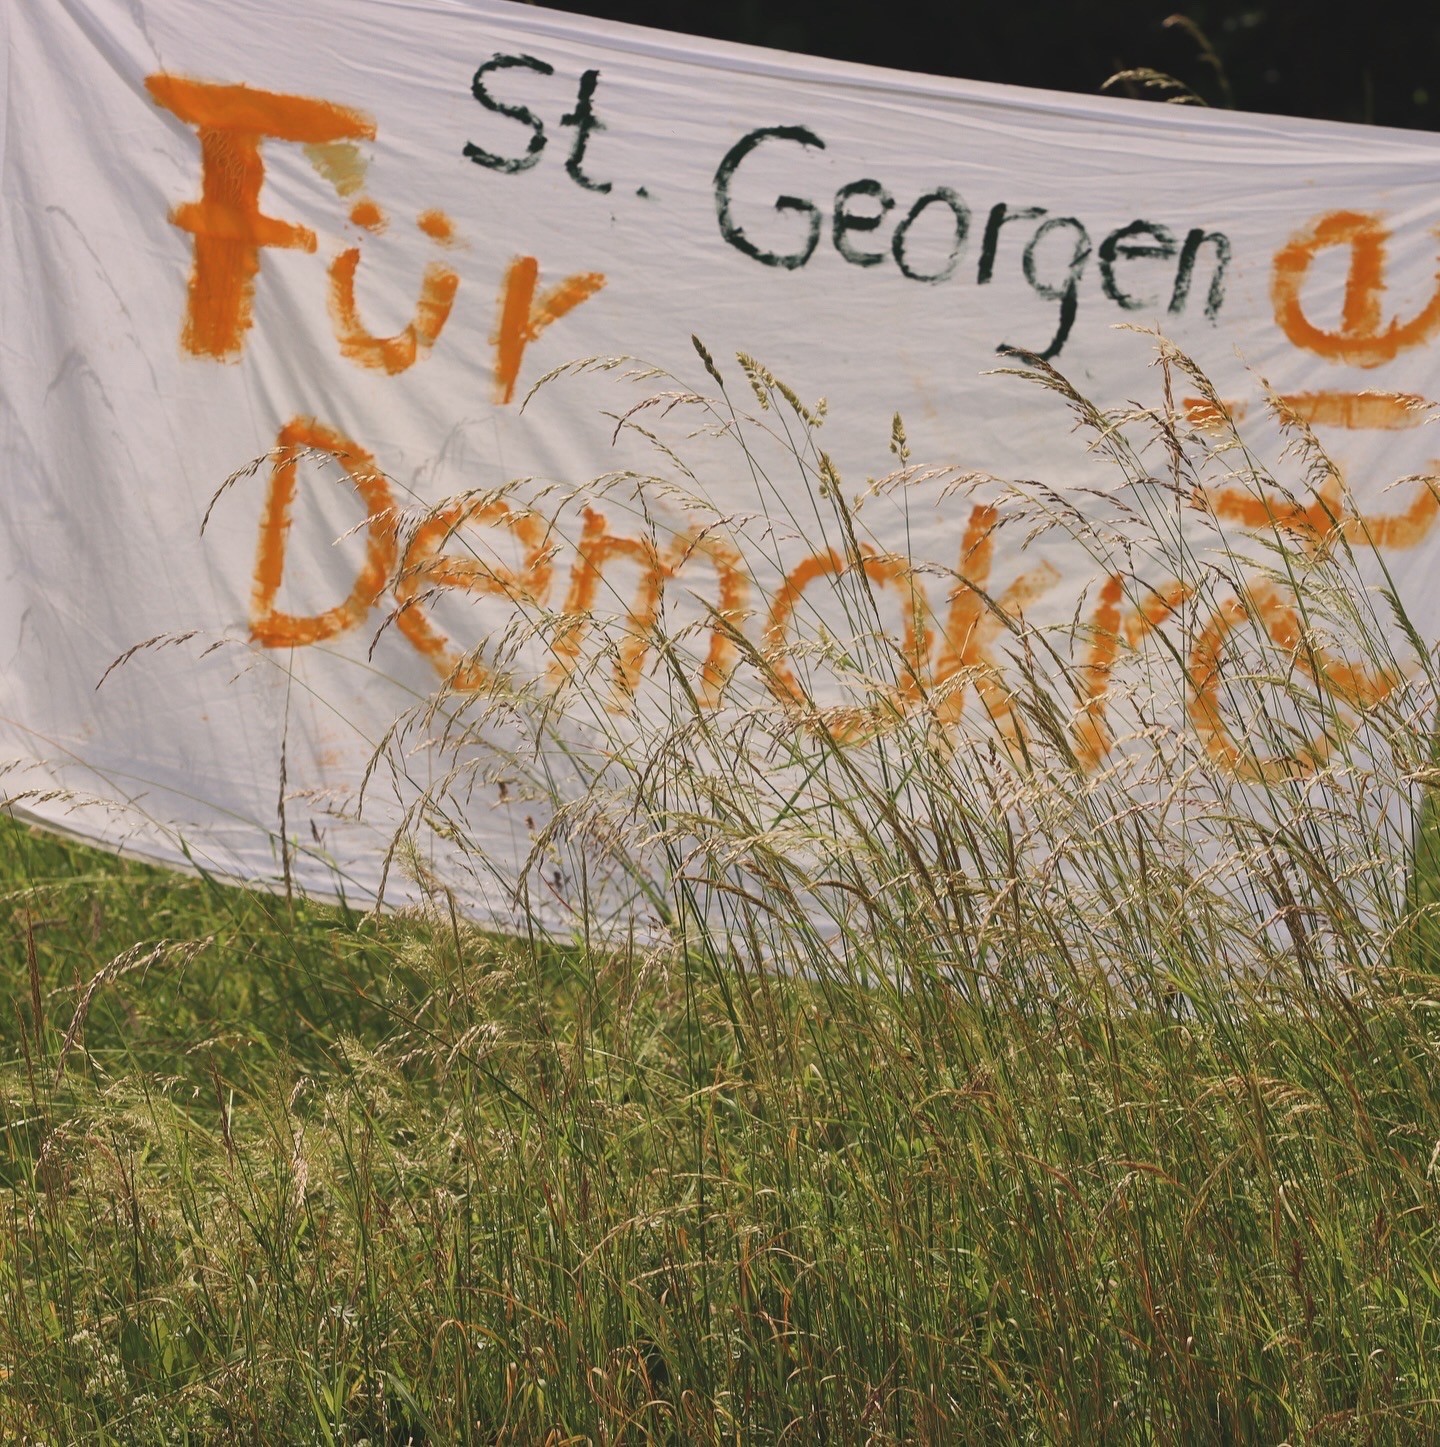 St. Georgen
Für
Demokra